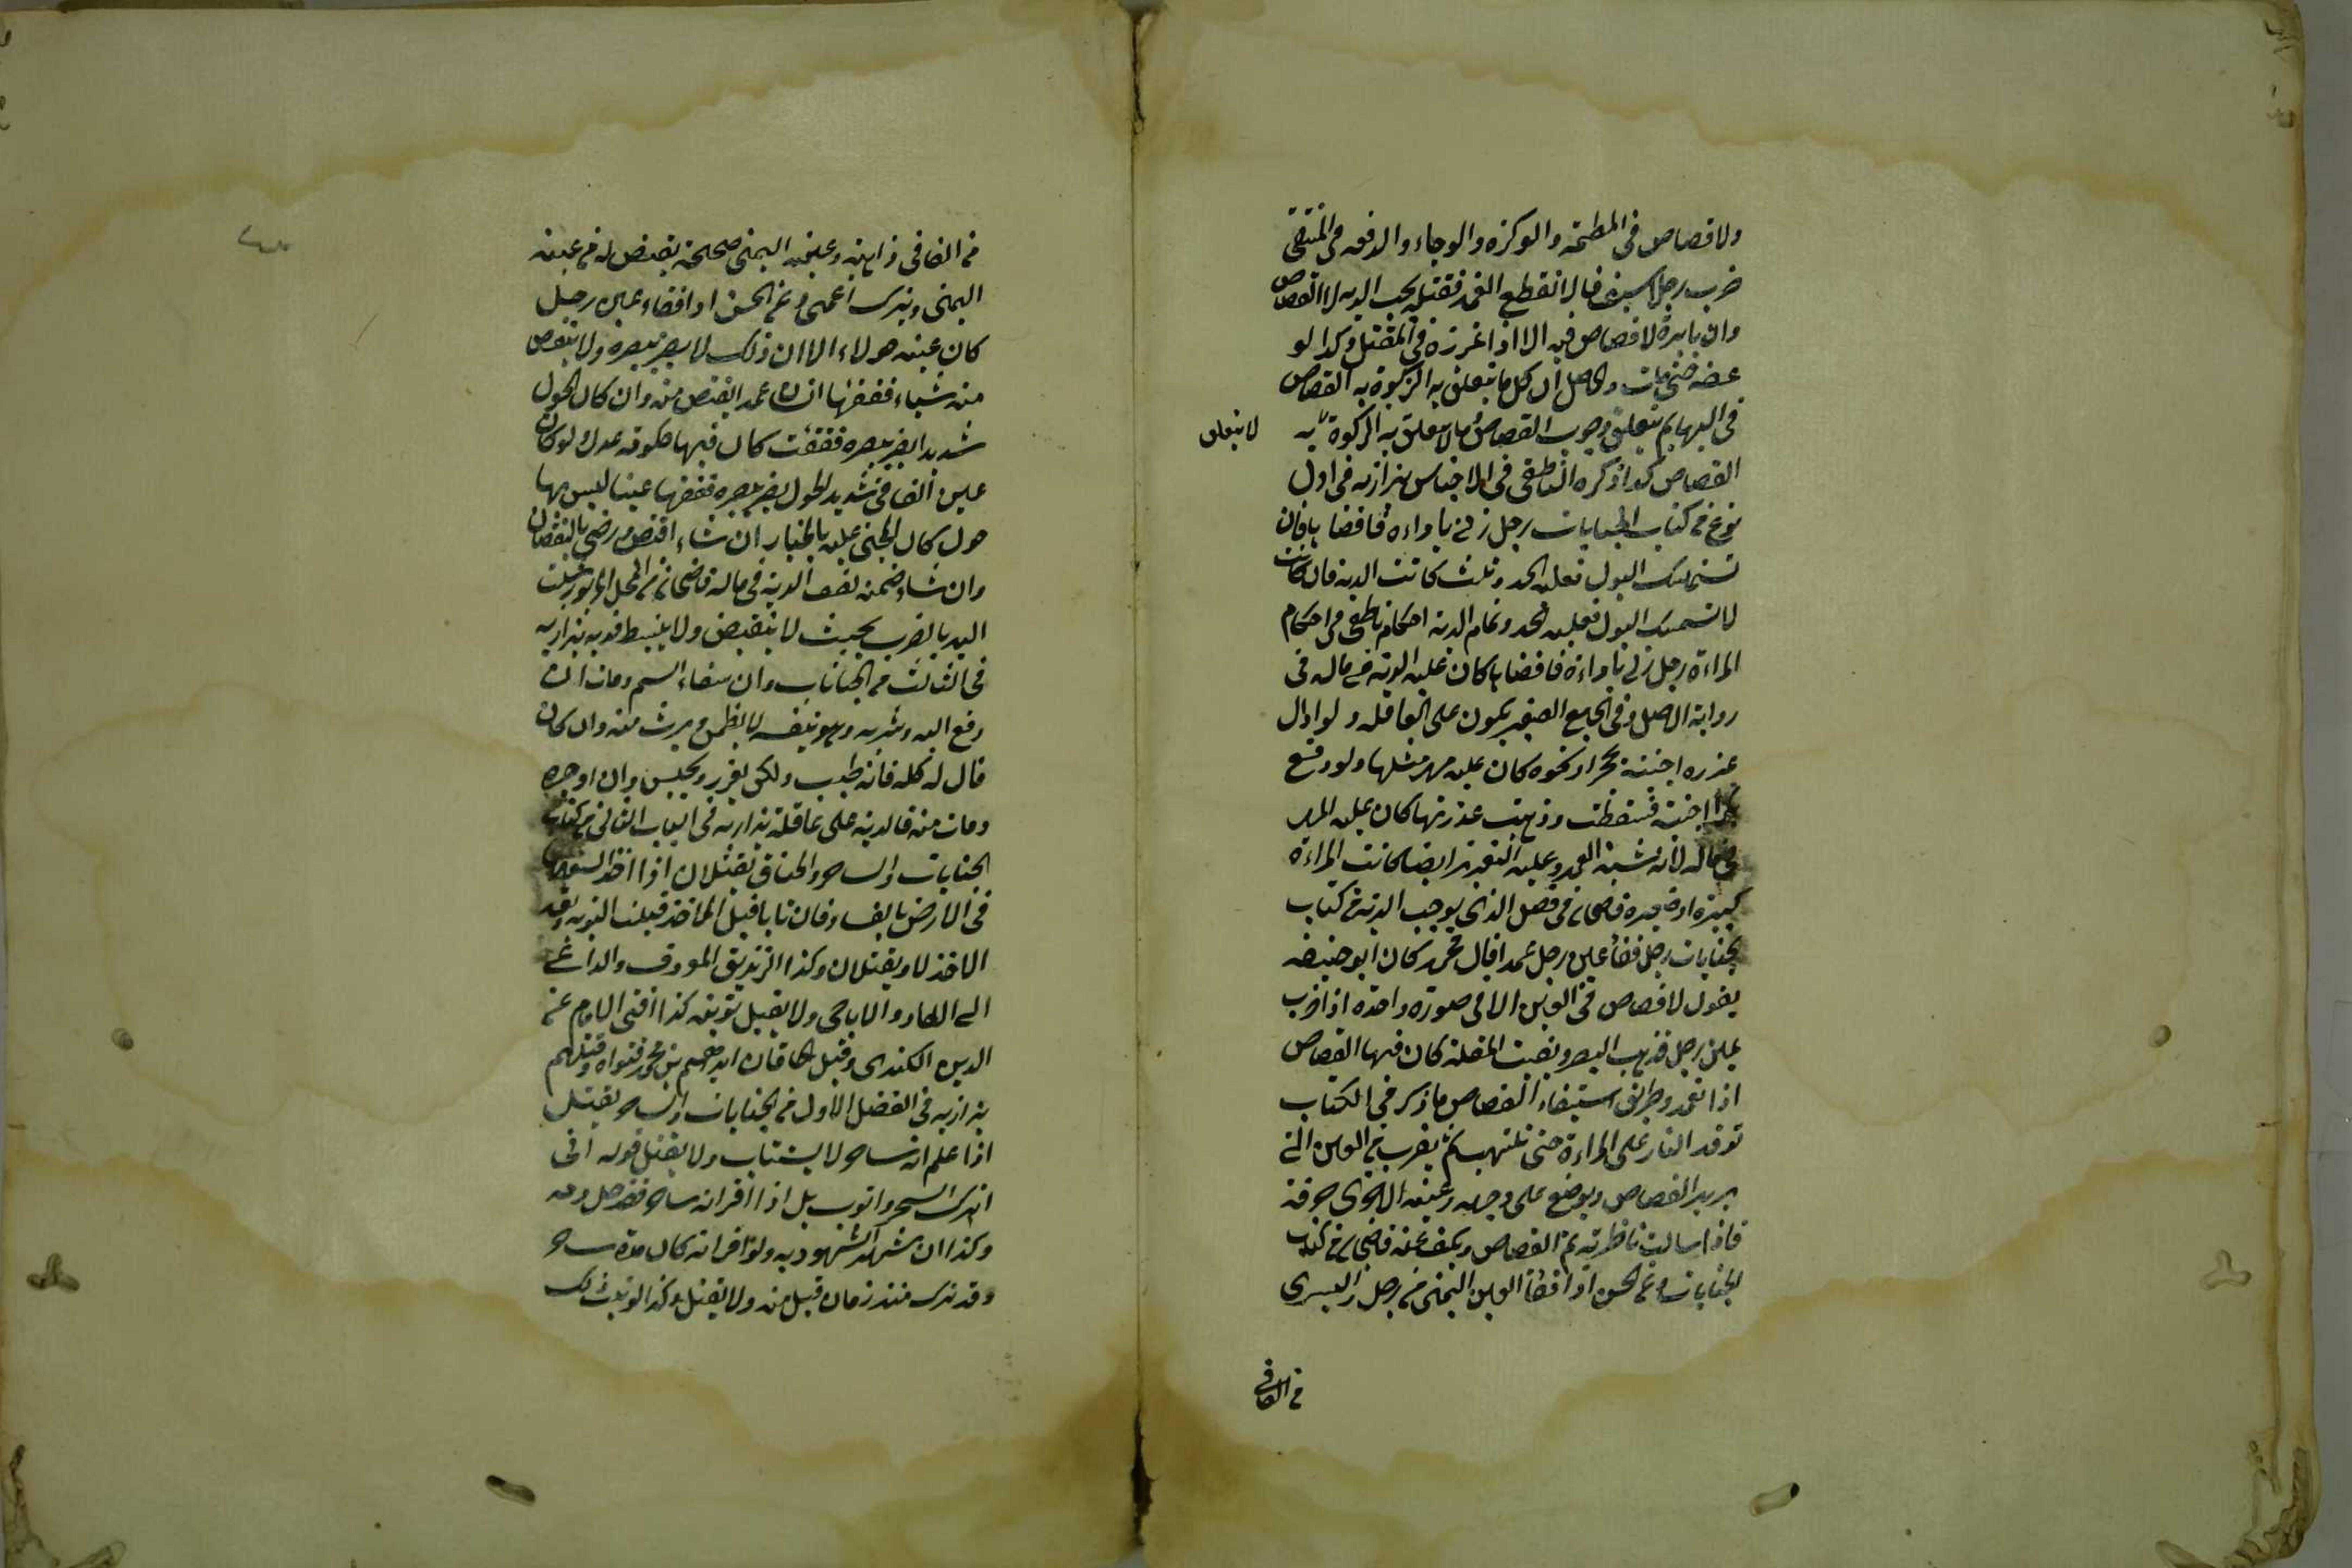 ولا قصاص في اللطمة والوكزة والوجاء والدفعة من المنتقى
ضرب رجلا بسيف فانقطع الغمد فقتله يجب الدية لا القصاص
وان بابرة لا قصاص فيه الا اذا غرزه في المقتل وكذا لو
عضه حتى مات والحاصل ان كل ما يتعلق به الزكوة به القصاص
في البهايم يتعلق وجوب القصاص وما لا يتعلق به الزكوة به
لا يتعلق
القصاص كذا ذكره الناطفي في الاجناس بزازيه في اول
نوع من كتاب الجنايات رجل زنى باواءة فافضاها فان
تستمسك البول فعليه الحد وثلث كانت الدية فان كانت
لا تستمسك البول فعليه الحد وتمام الدية احكام ناطفي من احكام
المراءة رجل زنى باواءة فافضاها كان عليه الدية في ماله في
رواية الاصل وفي الجامع الصغير يكون على العاقلة ولو ازال
عذره اجنبية بحجر او نحوه كان عليه مهر مثلها ولو دفع
اجنبية فسقطت وذهبت عذرتها كان عليه المهر
في ماله لانه شبه العمد وعليه التعزير ايضا كانت المراءة
كبيرة او صغيرة قاضيخان في فصل الذي يوجب الدية من كتاب
الجنايات رجل فقاء عين رجل عمدا قال محمد كان ابو حنيفه
يقول لا قصاص في العين الا في صورة واحدة اذا ضرب
عين رجل فذهب البصر وبقيت المقلة كان فيها القصاص
اذا تعمد وطريق استيفاء القصاص ما ذكر في الكتاب
توقد النار على المراءة حتى تلتهب ثم يقرب من العين التي
يريد القصاص ويوضع على وجهه وعينه الاخرى خرقة
فاذا سالت ناظرته تم القصاص ويكف عنه قاضيخان من كتاب
الجنايات وعن الحسن اذا فقأ العين اليمنى من رجل واليسرى
من الفاقي
من الفاقي ذاهبة وعينه اليمنى صحيحة يقتص له من عينه
اليمنى ويترك اعمى وعن الحسن اذا فقاء عين رجل
كان عينه حولاء الا ان ذلك لا يضر ببصره ولا ينقص
منه شيئا ففقأها انسان عمدا يقتص منه وان كان الحول
شديدا يضر ببصره ففقئت كان فيها حكومة عدل ولو كان
عين الفاقي شديد الحول يضر ببصره ففقأها عينا ليس بها
حول كان المجني عليه بالخيار ان شاء اقتص ورضي بالنقصان
وان شاء ضمنه نصف الدية في ماله قاضيخان من المحل
اليد بالضرب بحيث لا ينقبض ولا ينبسط بزازيه
في الثالث من الجنايات وان سقاه السم ومات ان
دفع اليه وشربه وهو بنفسه لا يضمن ويرث منه وان كان
قال له كله فانه طيب ولكن يعزر ويحبس وان اوجره
ومات منه فالدية على عاقلة بزازيه في الباب الثاني من كتاب
الجنايات والساحر والخناق يقتلان اذا اخذ السعيهما
في الارض بالفساد فان تابا قبل الاخذ قبلت التوبة وبعد
الاخذ لا ويقتلان وكذا الزنديق المعروف والداعي
الى الالحاد والاباحي ولا يقبل توبته كذا افتى الامام عز
الدين الكندي وقتل الخاقان ابراهيم بن محمد بفتواه وقتلهم
بزازيه في الفصل الاول من الجنايات والساحر يقتل
اذا علم انه ساحر لا يستتاب ولا يقبل قوله اني
اترك السحر واتوب بل اذا اقر انه ساحر فقد حل دمه
وكذا ان شهد الشهود به ولو اقر انه كان مدة ساحرا
وقد ترك منذ زمان قبل منه ولا يقتل وكذا لو ثبت ذلك